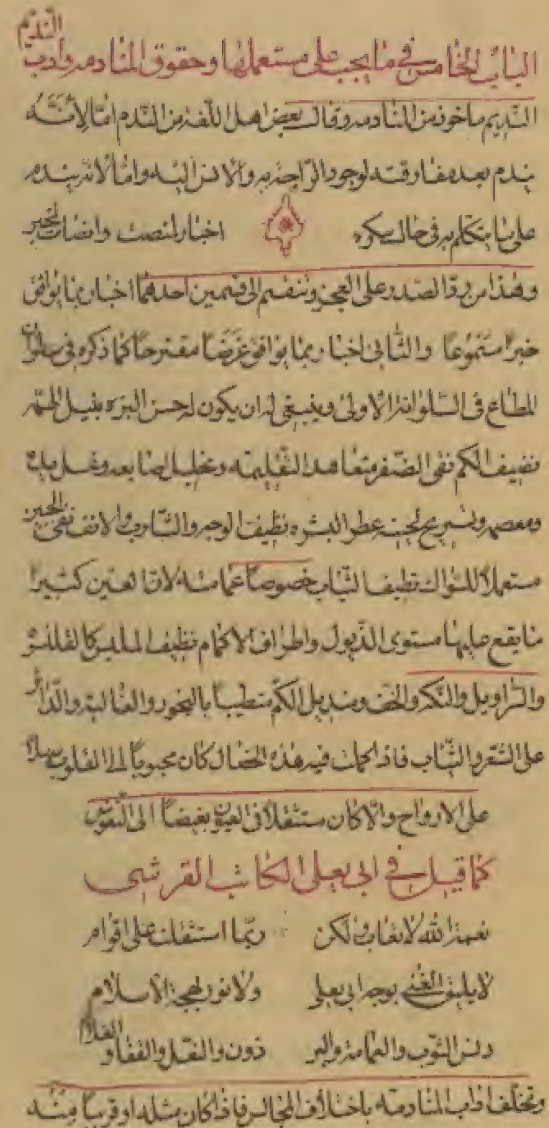 الباب الخامس في ما يجب على مستعملها وحقوق المنادمة وادب النديم
النديم ماخوذ من المنادمة وقال بعض اهل اللغة من الندم امّا لانّه
يندم بعد مفارقته لوجود الراحة به والانس اليه وامّا لانه يندم
على ما يتكلم به في حال سكره اخبار لمنصت وانصات لمخبر
وهذا من ردّ الصدر على العجز وتنقسم الى قسمين احدهما اخبار بما يوافق
خبراً مستموعاً والثاني اخبار بما يوافق غرضاً مقترحاً كما ذكره في سلوان
المطاع في السلوانة الاولى وينبغي له ان يكون له حسن البزه نبيل الهمّه
نضيف الكم نقي الضفر متعاهد التقليمه وتخليل اصابعه وغسل يديه
ومعصمه وتسريح لحيته عطر البشره نظيف الوجه والشارب والانف نقي الجبين
مستعملاً للسواك نظيف الثياب خصوصاً عمامته لان العين كثيراً
ما يقع عليها مستوى الذيول واطراف الاكمام نظيف الملبس كالقلنسوة
والسراويل والتكه والخف ومنديل الكمّ متطيباً بالبخور والغالية والذرائر
على الشعر والثياب فاذا كملت فيه هذه الخصال كان محبوباً الى القلوب
على الارواح والّا كان مستثقلاً في العيون بغيضاً الى النفوس
كما قيل في ابي يعلى الكاتب القرشي
نعمة الله لا تعاب ولكن ربّما استثقلت على اقوام
لا يليق الغنى بوجه ابي يعلى ولا نور بهجة الاسلام
دنس الثوب والعمامة والبرذون والنعل والقفا والغلام
وتختلف اداب المنادمة باختلاف المجالس فاذا كان مثله او قريباً منه